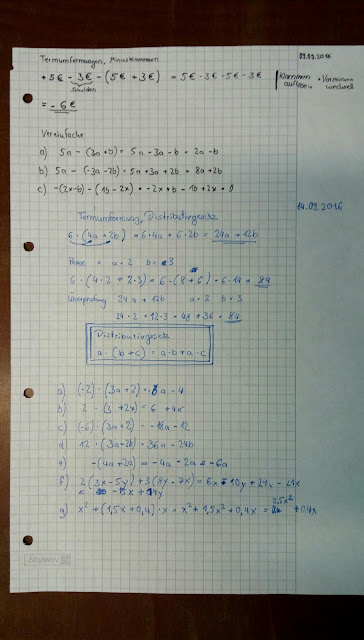 Termumformungen, Minusklammern 09.09.2016
+5€ - 3€ - (5€ + 3€) = 5€ - 3€ - 5€ - 3€ Klammern auflösen
Schulden
= -6€
Vereinfache
a) 5a - (3a+b) = 5a - 3a - b = 2a - b
b) 5a - (-3a-2b) = 5a + 3a + 2b = 8a + 2b
c) -(2x-b) - (1b - 2x) = -2x + b - 1b + 2x = 0
Termumformung, Distributivgesetz 14.09.2016
6 · (4a + 2b) = 6·4a + 6·2b = 24a + 12b
Probe a = 2 b = 3
6 · (4·2 + 2·3) = 6·(8+6) = 6·14 = 84
Überprüfung 24a + 12b a = 2 b = 3
24·2 + 12·3 = 48 + 36 = 84
Distributivgesetz
a · (b+c) = a·b + a·c
a) (-2) · (3a+2) = -6a - 4
b) 2 · (3+2x) = 6 + 4x
c) (-6) · (3a+2) = -18a - 12
d) 12 · (3a-2b) = 36a - 24b
e) -(4a+2a) = -4a - 2a = -6a
f) 2(3x-5y) + 3(8y-7x) = 6x - 10y + 24y - 21x
= -15x + 14y
g) x² + (1,5x + 0,4) · x = x² + 1,5x² + 0,4x = 2,5x² + 0,4x